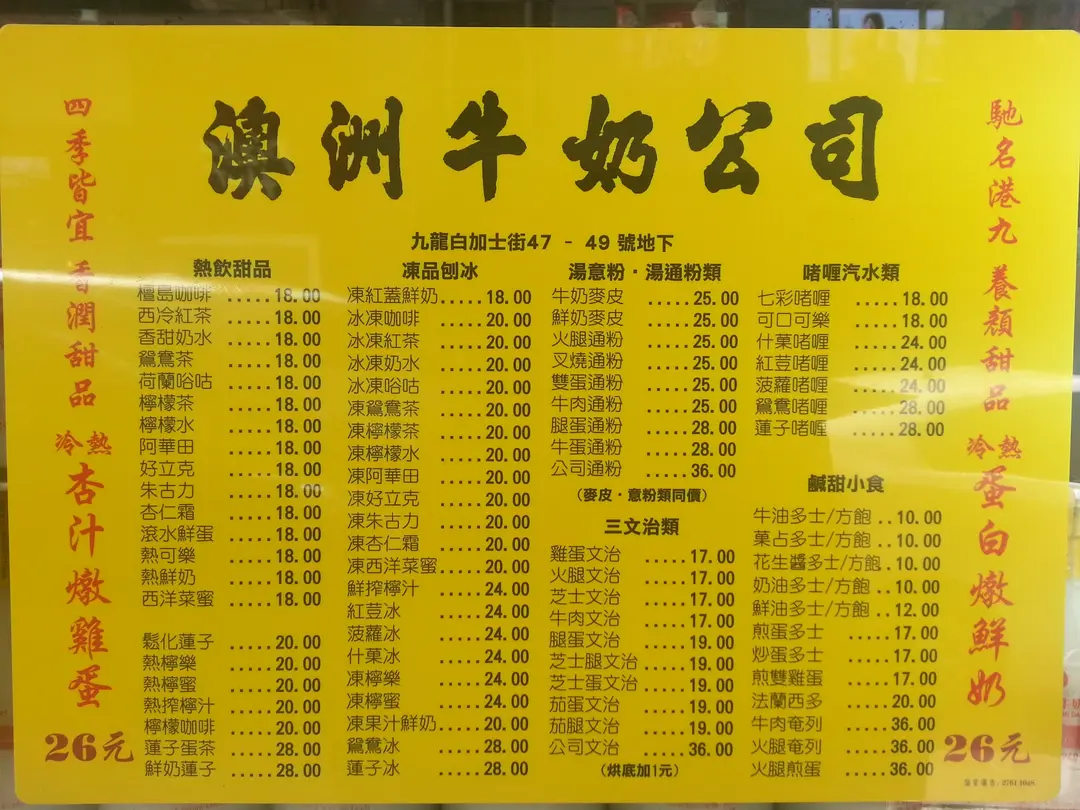 澳洲牛奶公司
九龍白加士街47 - 49 號地下
四季皆宜 香潤甜品
冷熱
杏汁燉雞蛋
26元
熱飲甜品
檀島咖啡 .....18.00
西冷紅茶 .....18.00
香甜奶水 .....18.00
鴛鴦茶 .....18.00
荷蘭唂咕 .....18.00
檸檬茶 .....18.00
檸檬水 .....18.00
阿華田 .....18.00
好立克 .....18.00
朱古力 .....18.00
杏仁霜 .....18.00
滾水鮮蛋 .....18.00
熱可樂 .....18.00
熱鮮奶 .....18.00
西洋菜蜜 .....18.00
鬆化蓮子 .....20.00
熱檸樂 .....20.00
熱檸蜜 .....20.00
熱搾檸汁 .....20.00
檸檬咖啡 .....20.00
蓮子蛋茶 .....28.00
鮮奶蓮子 .....28.00
凍品刨冰
凍紅蓋鮮奶.....18.00
冰凍咖啡 .....20.00
冰凍紅茶 .....20.00
冰凍奶水 .....20.00
冰凍唂咕 .....20.00
凍鴛鴦茶 .....20.00
凍檸檬茶 .....20.00
凍檸檬水 .....20.00
凍阿華田 .....20.00
凍好立克 .....20.00
凍朱古力 .....20.00
凍杏仁霜 .....20.00
凍西洋菜蜜.....20.00
鮮搾檸汁 .....24.00
紅荳冰 .....24.00
菠蘿冰 .....24.00
什菓冰 .....24.00
凍檸樂 .....24.00
凍檸蜜 .....24.00
凍果汁鮮奶.....20.00
鴛鴦冰 .....28.00
蓮子冰 .....28.00
湯意粉·湯通粉類
牛奶麥皮 .....25.00
鮮奶麥皮 .....25.00
火腿通粉 .....25.00
叉燒通粉 .....25.00
雙蛋通粉 .....25.00
牛肉通粉 .....25.00
腿蛋通粉 .....28.00
牛蛋通粉 .....28.00
公司通粉 .....36.00
(麥皮·意粉類同價)
三文治類
雞蛋文治 .....17.00
火腿文治 .....17.00
芝士文治 .....17.00
牛肉文治 .....17.00
腿蛋文治 .....19.00
芝士腿文治 .....19.00
芝士蛋文治 .....19.00
茄蛋文治 .....19.00
茄腿文治 .....19.00
公司文治 .....36.00
(烘底加1元)
啫喱汽水類
七彩啫喱 .....18.00
可口可樂 .....18.00
什菓啫喱 .....24.00
紅荳啫喱 .....24.00
菠蘿啫喱 .....24.00
鴛鴦啫喱 .....28.00
蓮子啫喱 .....28.00
鹹甜小食
牛油多士/方飽 ..10.00
菓占多士/方飽 ..10.00
花生醬多士/方飽 .10.00
奶油多士/方飽 ..10.00
鮮油多士/方飽 ..12.00
煎蛋多士 .....17.00
炒蛋多士 .....17.00
煎雙雞蛋 .....17.00
法蘭西多 .....20.00
牛肉奄列 .....36.00
火腿奄列 .....36.00
火腿煎蛋 .....36.00
馳名港九 養顏甜品
冷熱
蛋白燉鮮奶
26元